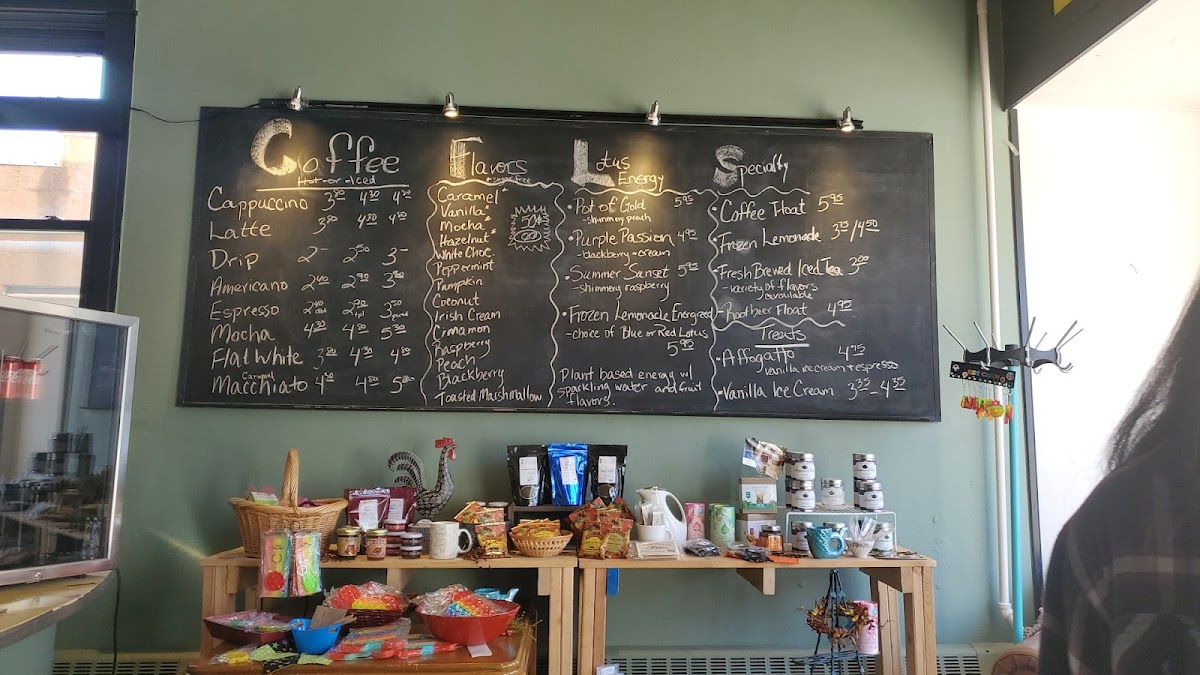 Coffee
Hot or Iced
Cappuccino 3.80 4.30 4.80
Latte 3.80 4.30 4.80
Drip 2- 2.50 3-
Americano 2.40 2.90 3.40
Espresso 2.40 dbl 2.90 tpl 3.50 quad
Mocha 4.30 4.80 5.30
Flat White 3.80 4.30 4.80
Caramel
Macchiato 4.30 4.80 5.30
Flavors
*sugar free
Caramel*
Vanilla*
Mocha*
Hazelnut*
White Choc.
Peppermint
Pumpkin
Coconut
Irish Cream
Cinnamon
Raspberry
Peach
Blackberry
Toasted Marshmallow
50¢
Lotus
Energy
•Pot of Gold 5.95
-shimmery peach
•Purple Passion 4.95
-backberry+cream
•Summer Sunset 5.95
-shimmery raspberry
•Frozen Lemonade Energized
-choice of Blue or Red Lotus
5.95
Plant based energy w/
sparkling water and fruit
flavors.
Specialty
•Coffee Float 5.95
•Frozen Lemonade 3.75/4.50
•Fresh Brewed Iced Tea 3.00
-variety of flavors
available
Float 4.95
Treats
•Affogatto 4.75
vanilla ice cream + espresso
•Vanilla Ice Cream